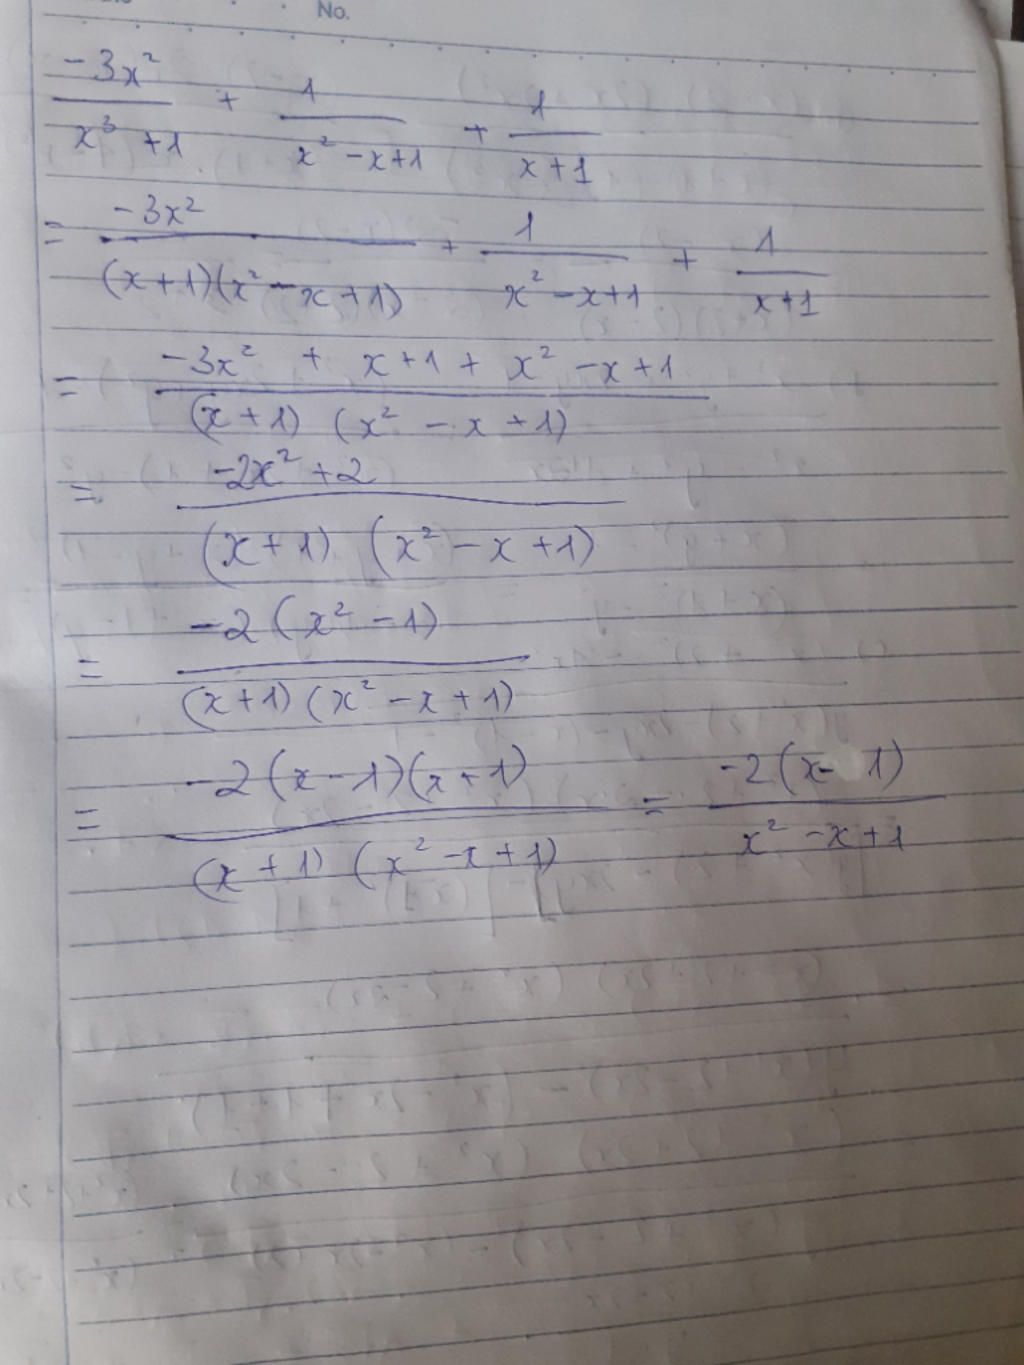 No.
-3x²/(x³ + 1) + 1/(x² - x + 1) + 1/(x + 1)
= -3x²/((x + 1)(x² - x + 1)) + 1/(x² - x + 1) + 1/(x + 1)
= (-3x² + x + 1 + x² - x + 1)/((x + 1)(x² - x + 1))
= (-2x² + 2)/((x + 1)(x² - x + 1))
= -2(x² - 1)/((x + 1)(x² - x + 1))
= -2(x - 1)(x + 1)/((x + 1)(x² - x + 1)) = -2(x - 1)/(x² - x + 1)